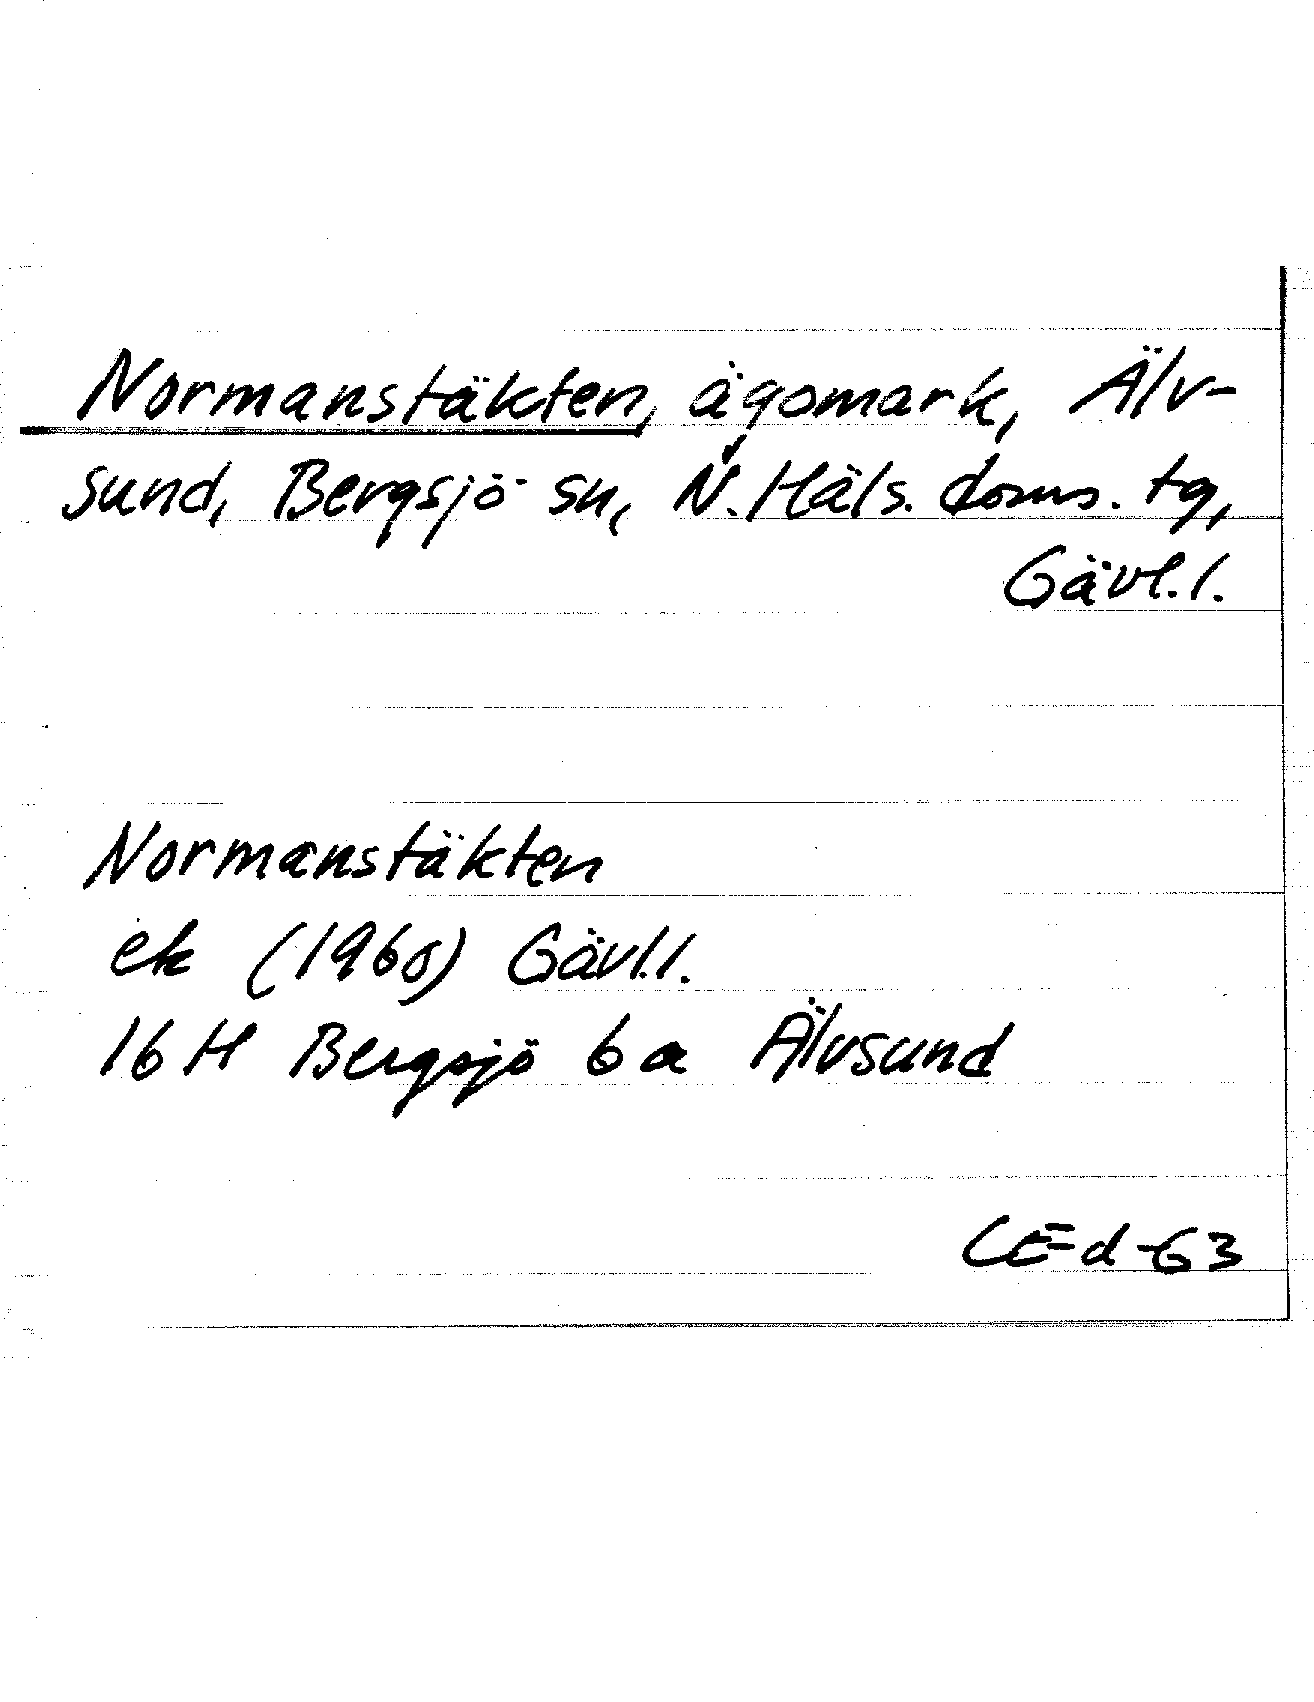 Normanstäkten, ägomark, Älv-
sund, Bergsjö sn, N. Häls. doms. tg,
Gävl.l.
Normanstäkten
ek (1960) Gävl.l.
16 H Bergsjö 6 a Älvsund
CEd-63